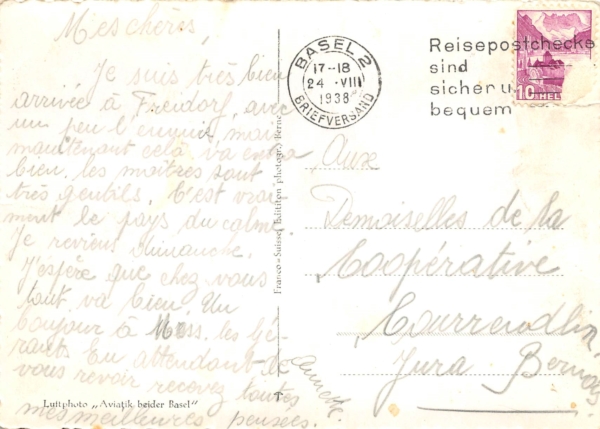 Mes chères,
Je suis très bien
arrivée à Freidorf, avec
un peu l'ennui, mais
maintenant cela va extra
bien. les maîtres sont
très gentils. C'est vrai-
ment le pays du calme.
Je reviens dimanche.
J'espère que chez vous
tout va bien. Un
bonjour à Mess. les Gé-
rants. En attendant de
vous revoir recevez toutes
mes meilleures pensées.
Annette.
Luftphoto „Aviatik beider Basel"
Franco-Suisse, Edititen photogr., Berne
BASEL 2
17-18
24.VIII
1938
BRIEFVERSAND
Reisepostchecke
sind
sicher u.
bequem
10 HEL
Aux
Demoiselles de la
Coopérative
Courrendlin
Jura Bernois